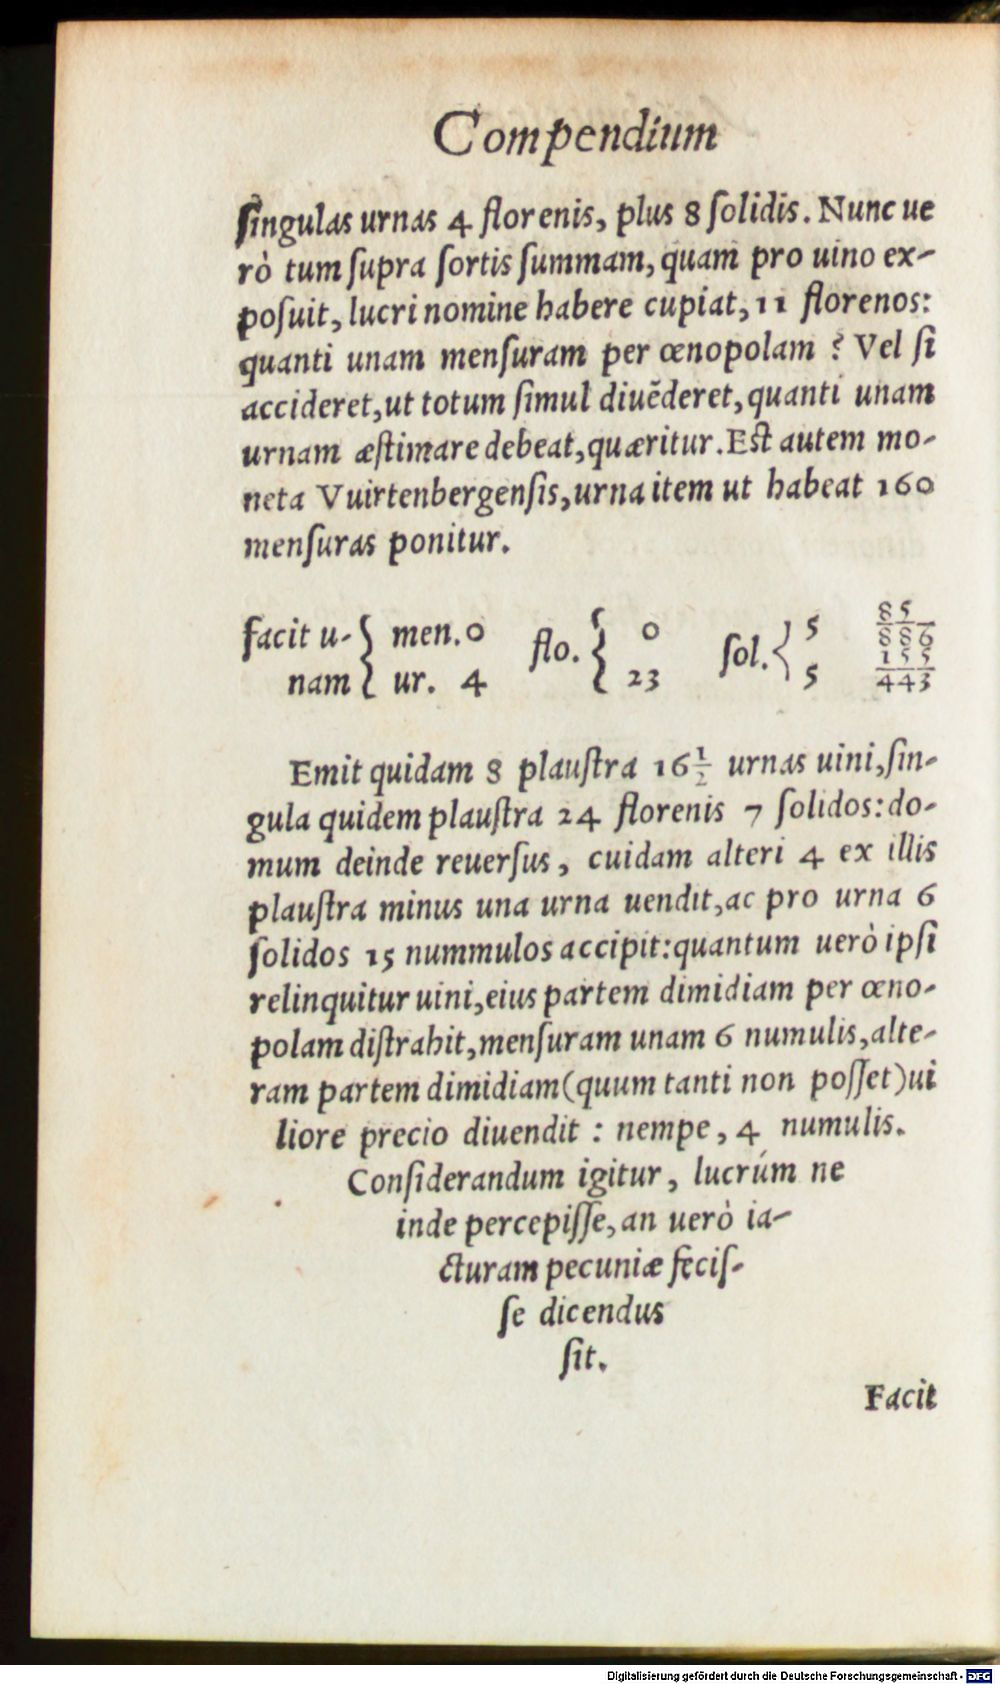 Compendium
ſingulas urnas 4 florenis, plus 8 ſolidis. Nunc ue
rò tum ſupra ſortis ſummam, quam pro uino ex-
poſuit, lucri nomine habere cupiat, 11 florenos:
quanti unam menſuram per œnopolam ? Vel ſi
accideret, ut totum ſimul diuẽderet, quanti unam
urnam æſtimare debeat, quæritur. Eſt autem mo-
neta Vuirtenbergenſis, urna item ut habeat 160
menſuras ponitur.
facit u- { men. 0 flo. { 0 ſol. { 5 85/886
nam { ur. 4 23 5 155/443
Emit quidam 8 plauſtra 16 1/2 urnas uini, ſin-
gula quidem plauſtra 24 florenis 7 ſolidos: do-
mum deinde reuerſus, cuidam alteri 4 ex illis
plauſtra minus una urna uendit, ac pro urna 6
ſolidos 15 nummulos accipit: quantum uerò ipſi
relinquitur uini, eius partem dimidiam per œno-
polam diſtrahit, menſuram unam 6 numulis, alte-
ram partem dimidiam (quum tanti non poſſet) ui
liore precio diuendit : nempe, 4 numulis.
Conſiderandum igitur, lucrúm ne
inde percepiſſe, an uerò ia-
cturam pecuniæ feciſ-
ſe dicendus
ſit.
Facit
Digitalisierung gefördert durch die Deutsche Forschungsgemeinschaft - DFG